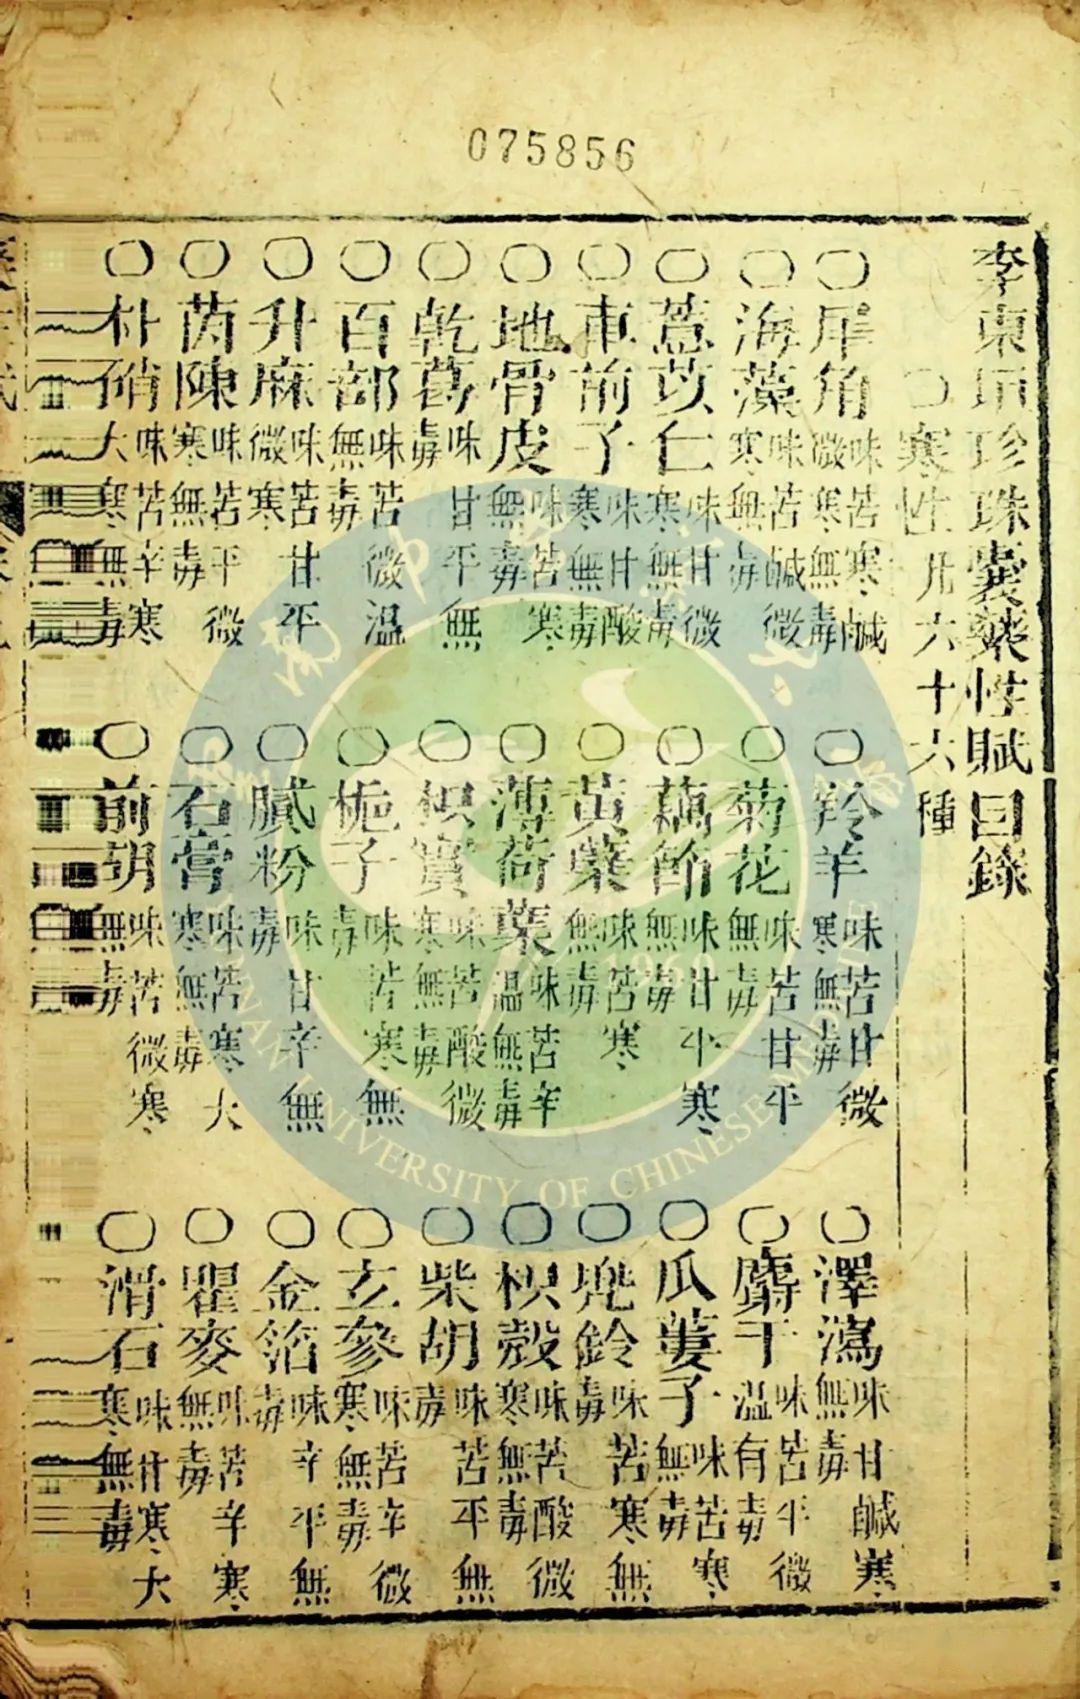 075856
李東垣珍珠囊藥性賦目錄
〇寒性凡六十六種
〇犀角 味苦寒鹹微寒無毒 〇羚羊 味苦甘微寒無毒 〇澤瀉 味甘鹹寒無毒
〇海藻 味苦鹹微寒無毒 〇菊花 味苦甘平無毒 〇麝干 味苦平微溫有毒
〇薏苡仁 味甘微寒無毒 〇藕節 味甘平寒無毒 〇瓜蔞子 味苦寒無毒
〇車前子 味甘酸寒無毒 〇黃蘗 味苦寒無毒 〇兜鈴 味苦寒無毒
〇地骨皮 味苦寒無毒 〇薄荷葉 味苦辛溫無毒 〇枳殼 味苦酸微寒無毒
〇乾葛 味甘平無毒 〇枳實 味苦酸微寒無毒 〇柴胡 味苦平無毒
〇百部 味苦微溫無毒 〇梔子 味苦寒無毒 〇玄參 味苦辛微寒無毒
〇升麻 味苦甘平微寒 〇膩粉 味甘辛無毒 〇金箔 味辛平無毒
〇茵陳 味苦平微寒無毒 〇石膏 味苦寒大寒無毒 〇瞿麥 味苦辛寒無毒
〇朴硝 味苦辛寒大寒無毒 〇前胡 味苦微寒無毒 〇滑石 味甘寒大寒無毒
UNIVERSITY OF CHINESE